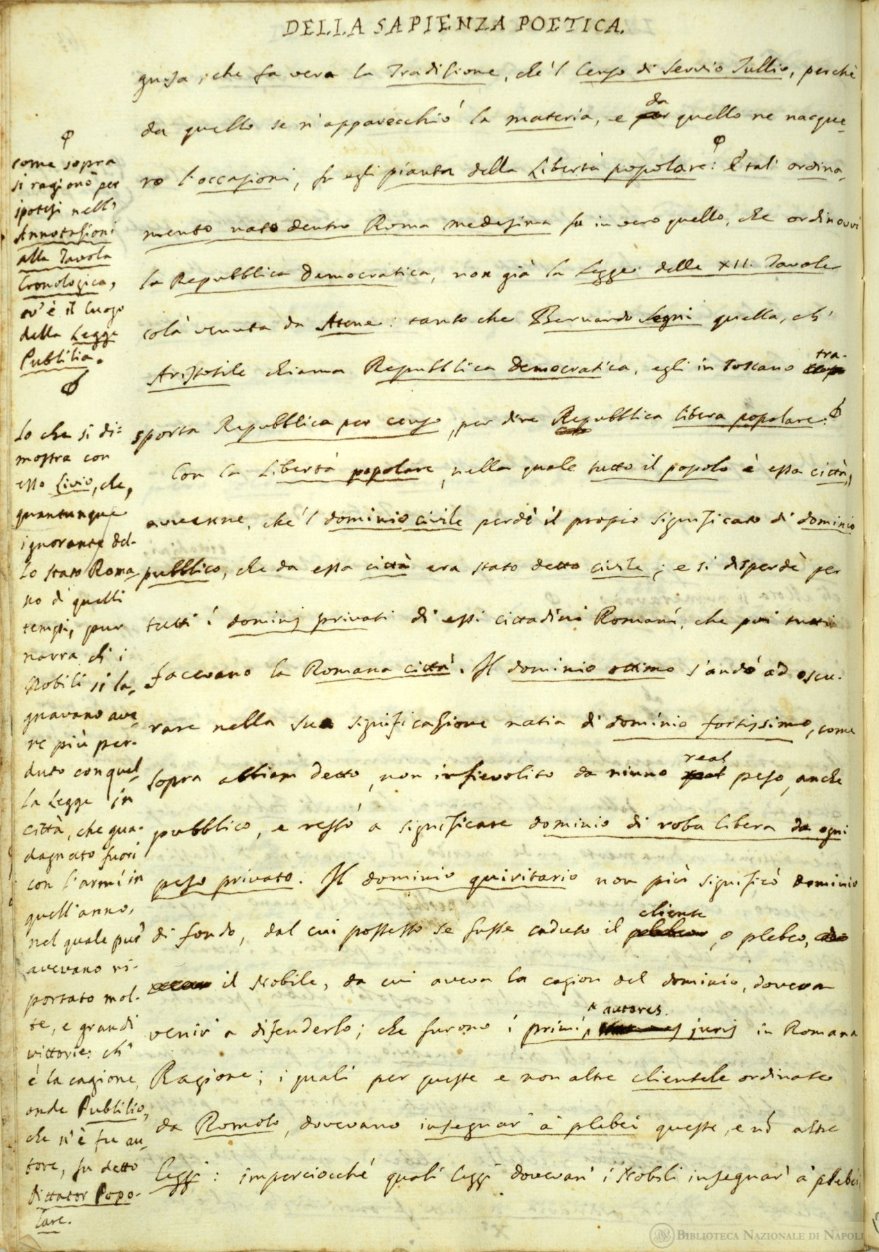 DELLA SAPIENZA POETICA.
guisa, che fa vera la Tradizione, che'l Censo di Servio Tullio, perchè
da quello se n'apparecchiò la materia, e da quello ne nacque-
ro l'occasioni, fu egli pianta della Libertà popolare: E tal' ordina-
mento nato dentro Roma medesima fu in vero quello, che ordinovvi
la Repubblica Democratica, non già la Legge delle XII. Tavole
colà venuta da Atene: tanto che Bernardo Segni quella, ch'
Aristotile chiama Repubblica democratica, egli in Toscano tra-
sporta Repubblica per censo, per dire Repubblica libera popolare.
Con la Libertà popolare, nella quale tutto il popolo è essa città,
avvenne, che'l dominio civile perdè il propio significato di dominio
pubblico, che da essa città era stato detto civile; e si disperdè per
tutti i dominj privati di essi cittadini Romani, che poi tutti
facevano la Romana città. Il dominio ottimo s'andò ad oscu-
rare nella sua significazione natia di dominio fortissimo, come
sopra abbiam detto, non infievolito da niuno real peso, anche
pubblico, e restò a significare dominio di roba libera da ogni
peso privato. Il dominio quiritario non più significò dominio
di fondo, dal cui possesso se fusse caduto il cliente, o plebeo,
il Nobile, da cui aveva la cagion del dominio, doveva
venir' a difenderlo; che furono i primi autores juris in Romana
Ragione; i quali per queste e non altre clientele ordinate
da Romolo, dovevano insegnar' a' plebei queste, e non altre
leggi: imperciocchè quali leggi dovevan' i Nobili insegnar' a' plebei
come sopra
si ragionò per
ipotesi nell'
Annotazioni
alla Tavola
Cronologica,
ov'è il luogo
della Legge
Publilia.
Lo che si di-
mostra con
esso Livio, che,
quantunque
ignorante del-
lo stato Roma-
no di quelli
tempi, pur
narra, ch' i
Nobili si la-
gnavano ave-
re più per-
duto con quel-
la Legge in
città, che gua-
dagnato fuori
con l'armi in
quell'anno,
nel quale pur'
avevano ri-
portato mol-
te, e grandi
vittorie: ch'
è la cagione,
onde Publilio,
che n'è fu au-
tore, fu detto
Dittator Popo-
lare.
BIBLIOTECA NAZIONALE DI NAPOLI